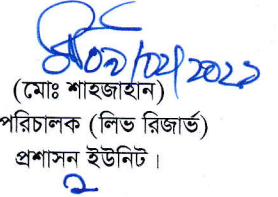 ০৯/০২/২০২১
(মোঃ শাহজাহান)
পরিচালক (লিভ রিজার্ভ)
প্রশাসন ইউনিট।
২